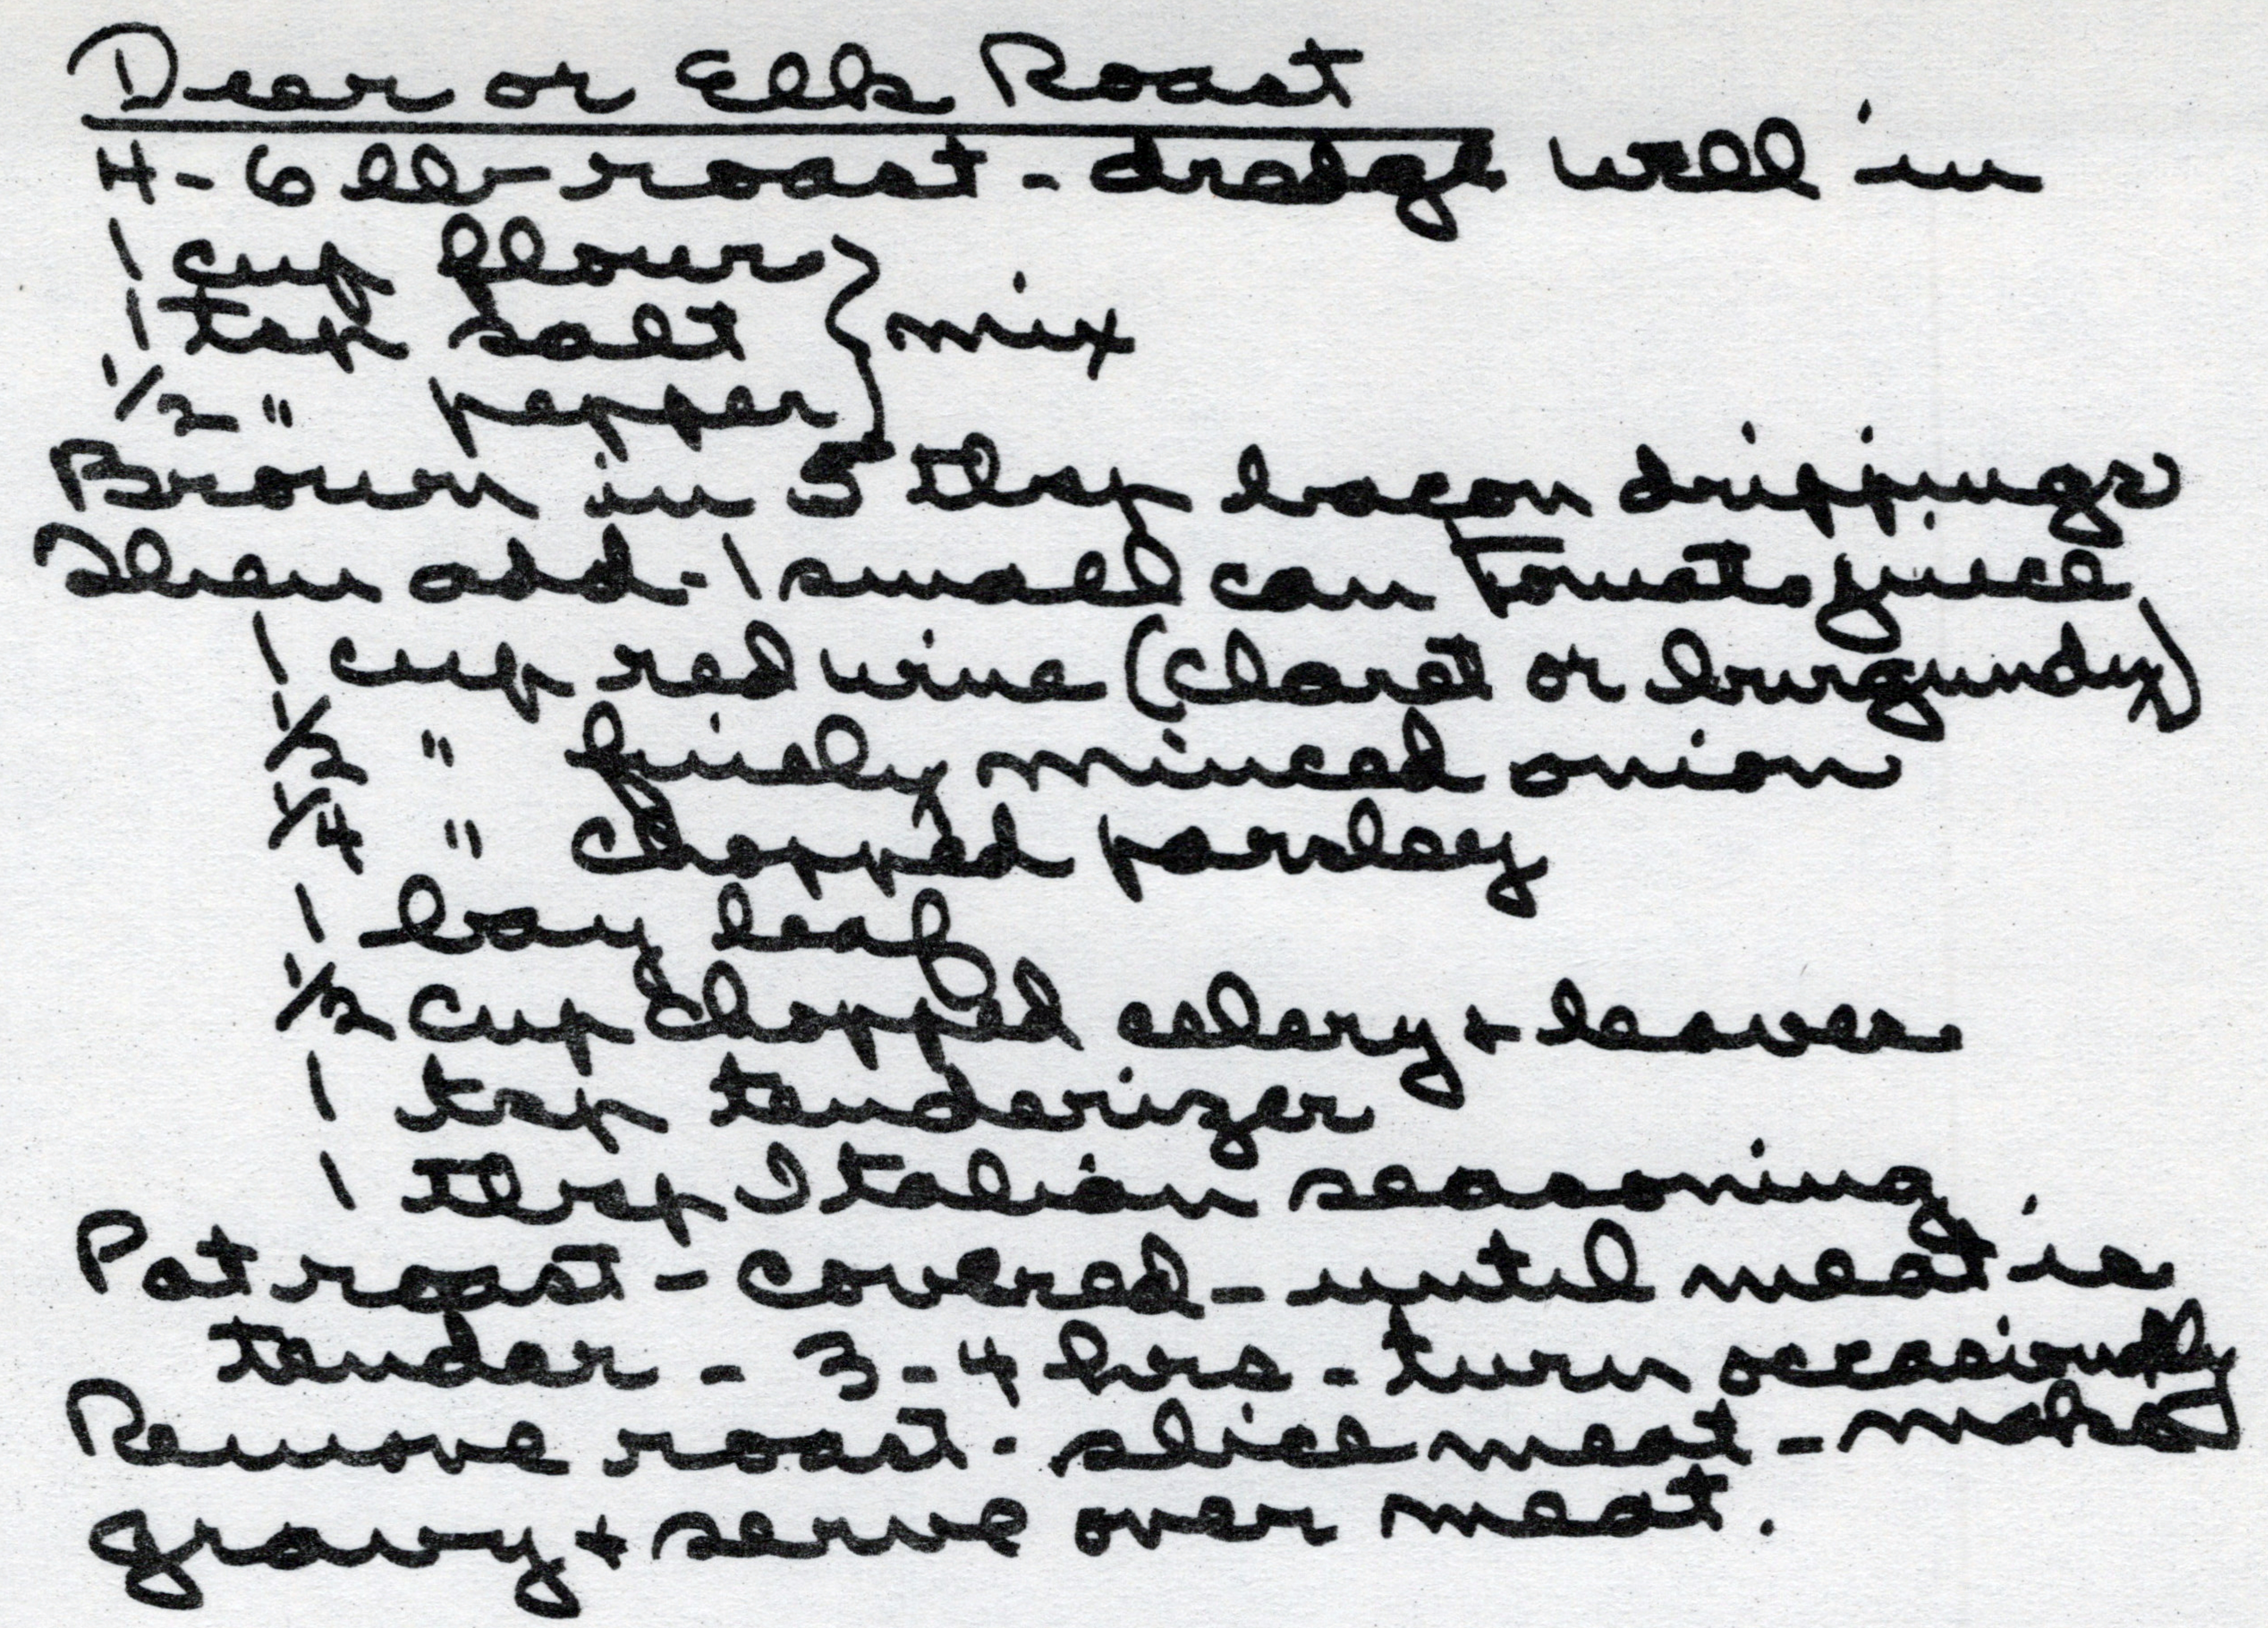 Dear or Elk Roast
4-6 lb roast - dredge well in
1 cup flour } mix
1 tsp salt
1/2 " pepper
Brown in 5 tbsp bacon drippings
Then add - 1 small can tomato juice
1 cup red wine (claret or burgundy)
1/2 " finely minced onion
1/4 " chopped parsley
1 bay leaf
1/2 cup chopped celery + leaves
1 tsp tenderizer
1 tbsp Italian seasoning
Pot roast - covered - until meat is
tender - 3-4 hrs - turn occasionally
Remove roast - slice meat - make
gravy + serve over meat.